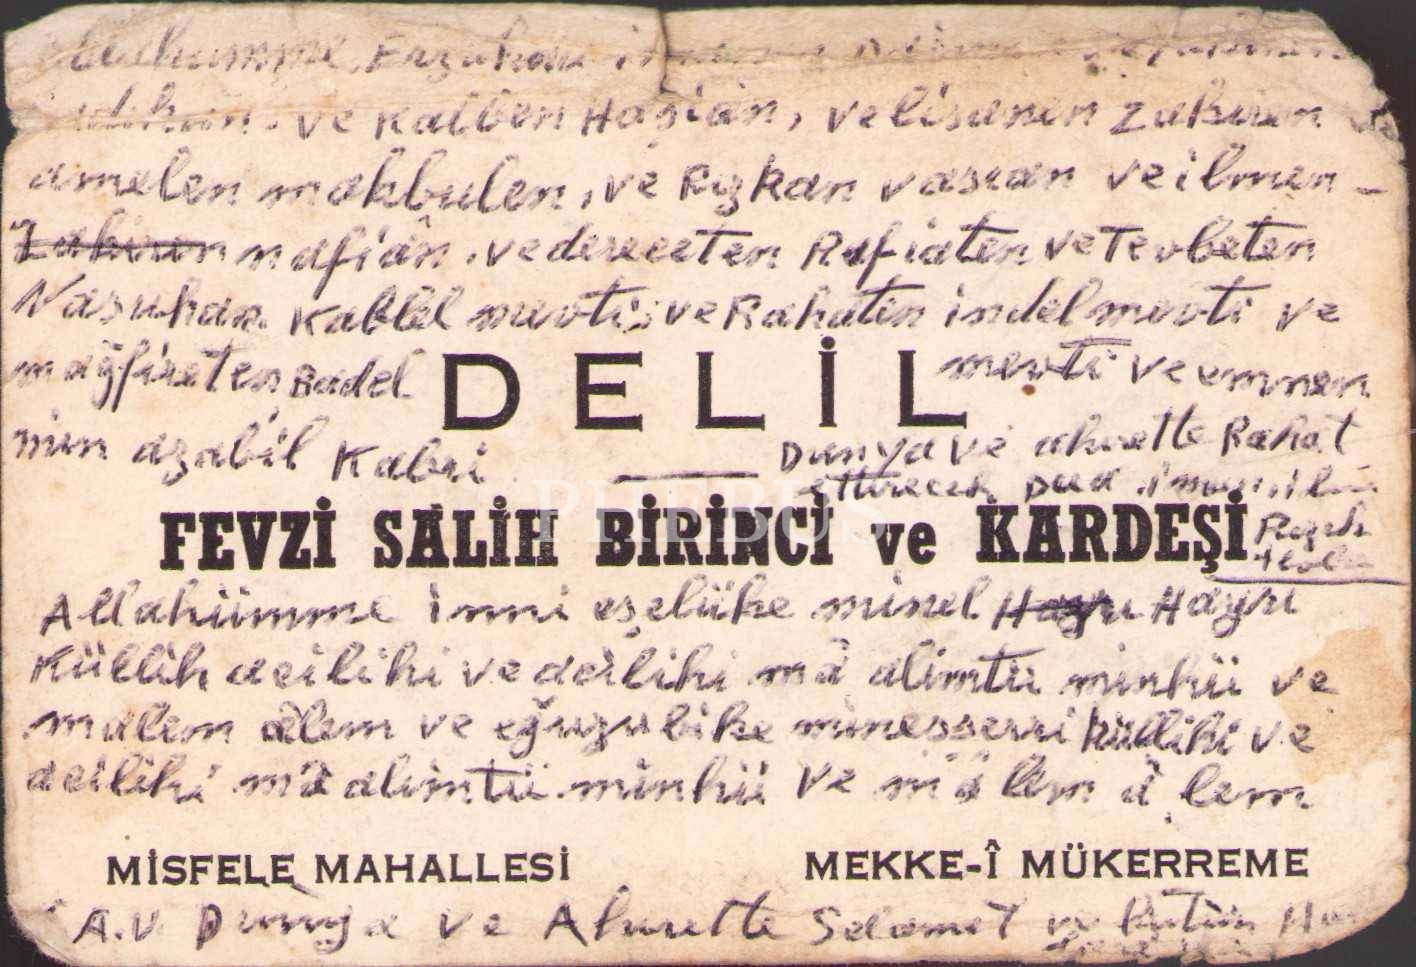 Allahümme Erzukna
ve Kalben Haşian, ve lisanen zakiren
amelen makbulen, ve Rızkan vasıan ve ilmen -
nafiân, ve dereceten Rafiaten ve Tevbeten
Nasuhan Kablel mevti, ve Rahaten indel mevti ve
mağfireten Badel mevti ve emnen
min azabil Kabri
DELİL
Dunya ve ahrette Rahat
ettirecek Dua
FEVZİ SALİH BİRİNCİ ve KARDEŞİ
Allahümme inni eşelüke minel Hayri
Küllih acilihi ve acilihi mâ alimtü minhü ve
malem âlem ve eğuzubike mineşşerri küllihi ve
acilihi mâ alimtü minhü ve mâ lem â lem
MİSFELE MAHALLESİ
MEKKE-Î MÜKERREME
A.V. Dunya ve Ahrette Selamet ve bütün
PHEBUS